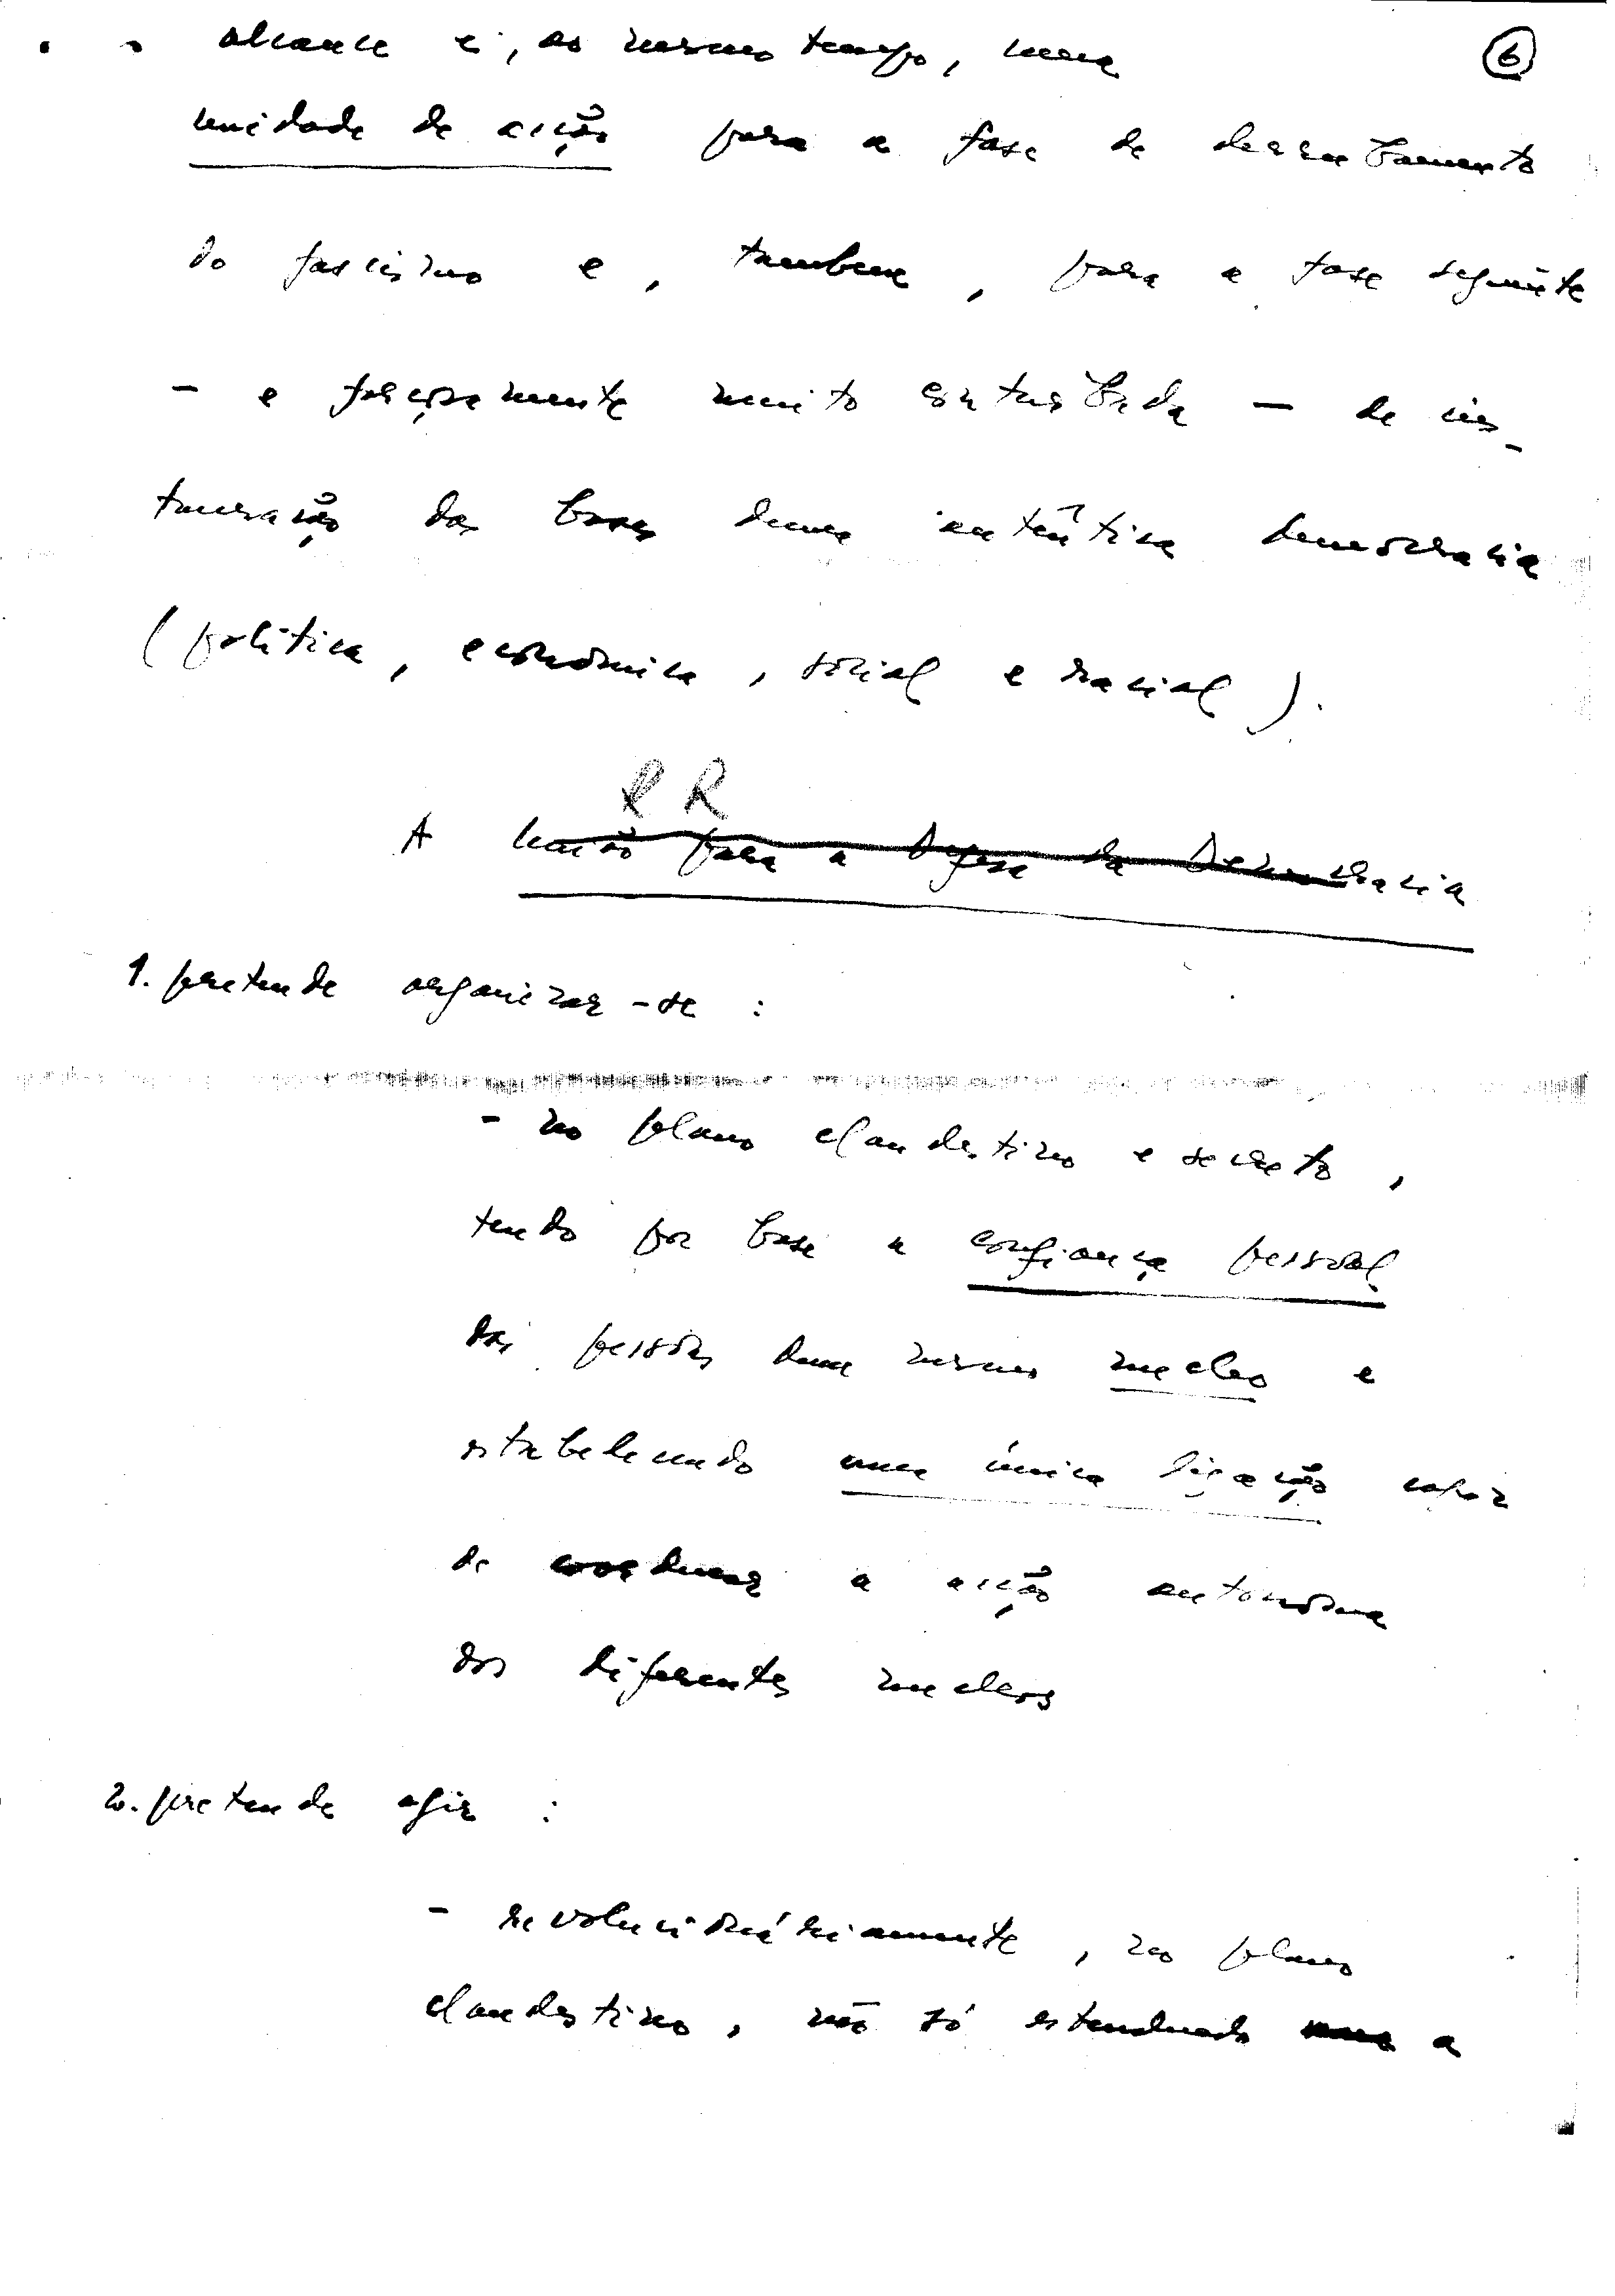 alcance e, ao mesmo tempo, uma
6
unidade de acção para a fase de derrubamento
do fascismo e, tambem, para a fase seguinte
- e forçosamente muito conturbada - de ins-
tauração das bases duma autêntica democracia
(política, económica, social e racial).
R R
A União para a Defesa da Democracia
1. pretende organizar-se :
- no plano clandestino e secreto,
tendo por base a confiança pessoal
das pessoas dum mesmo nucleo e
estabelecendo uma única ligação capaz
de coordenar a acção autonoma
dos diferentes nucleos
2. pretende agir :
- revolucionáriamente, no plano
clandestino, não só estendendo a